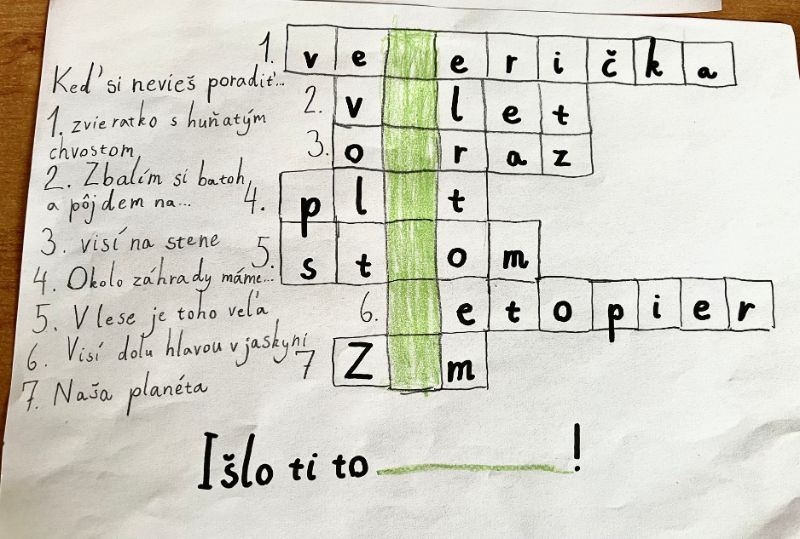 Keď si nevieš poradiť...
1. zvieratko s huňatým
chvostom
2. Zbalím si batoh,
a pôjdem na...
3. visí na stene
4. Okolo záhrady máme...
5. V lese je toho veľa
6. Visí dolu hlavou v jaskyni
7. Naša planéta
1. v e e r i č k a
2. v l e t
3. o r a z
4. p l t
5. s t o m
6. e t o p i e r
7 Z m
Išlo ti to !